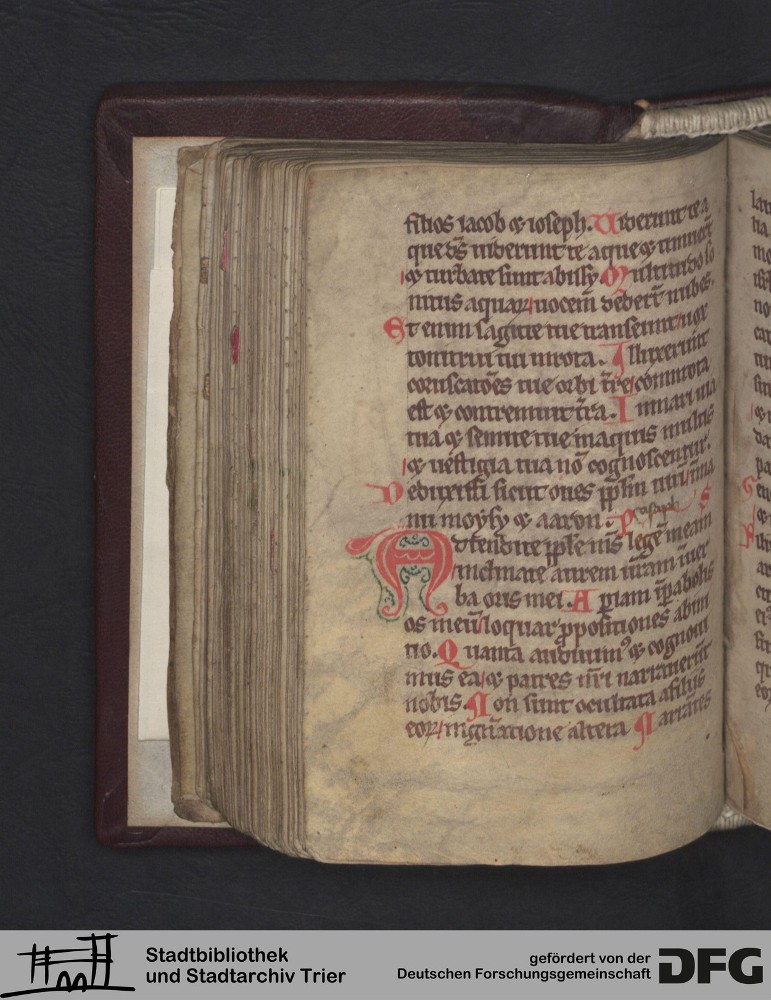 filios iacob ⁊ ioseph. Uiderunt te a
que ds̄ uiderunt te aque ⁊ timuer̄t
⁊ turbate sunt abissi Multitudo so
nitus aquaꝝ uocem deder̄t nubes.
Et enim sagitte tue transeunt uox
tonitrui tui in rota. Illuxerunt
coruscatōes tue orbi t̄re cōmota
est ⁊ contremuit t̄ra. In mari uia
tua ⁊ semite tue in aquis multis
⁊ uestigia tua nō cognoscentur.
Deduxisti sicut oues pp̄lm tuū in ma
nu moysy ⁊ aaron.
Adtendite pp̄le ms̄ legē meam
inclinate aurem ur̄am in uer
ba oris mei. Aperiam ī parabolis
os meū loquar ppositiones ab ini
tio. Quanta audiuimꝰ ⁊ cognoui
mus ea ⁊ patres nr̄i narrauerūt
nobis. Non sunt occultata a filiis
eoꝝ in gn̄atione altera Narrātes
Stadtbibliothek
und Stadtarchiv Trier
gefördert von der
Deutschen Forschungsgemeinschaft
DFG